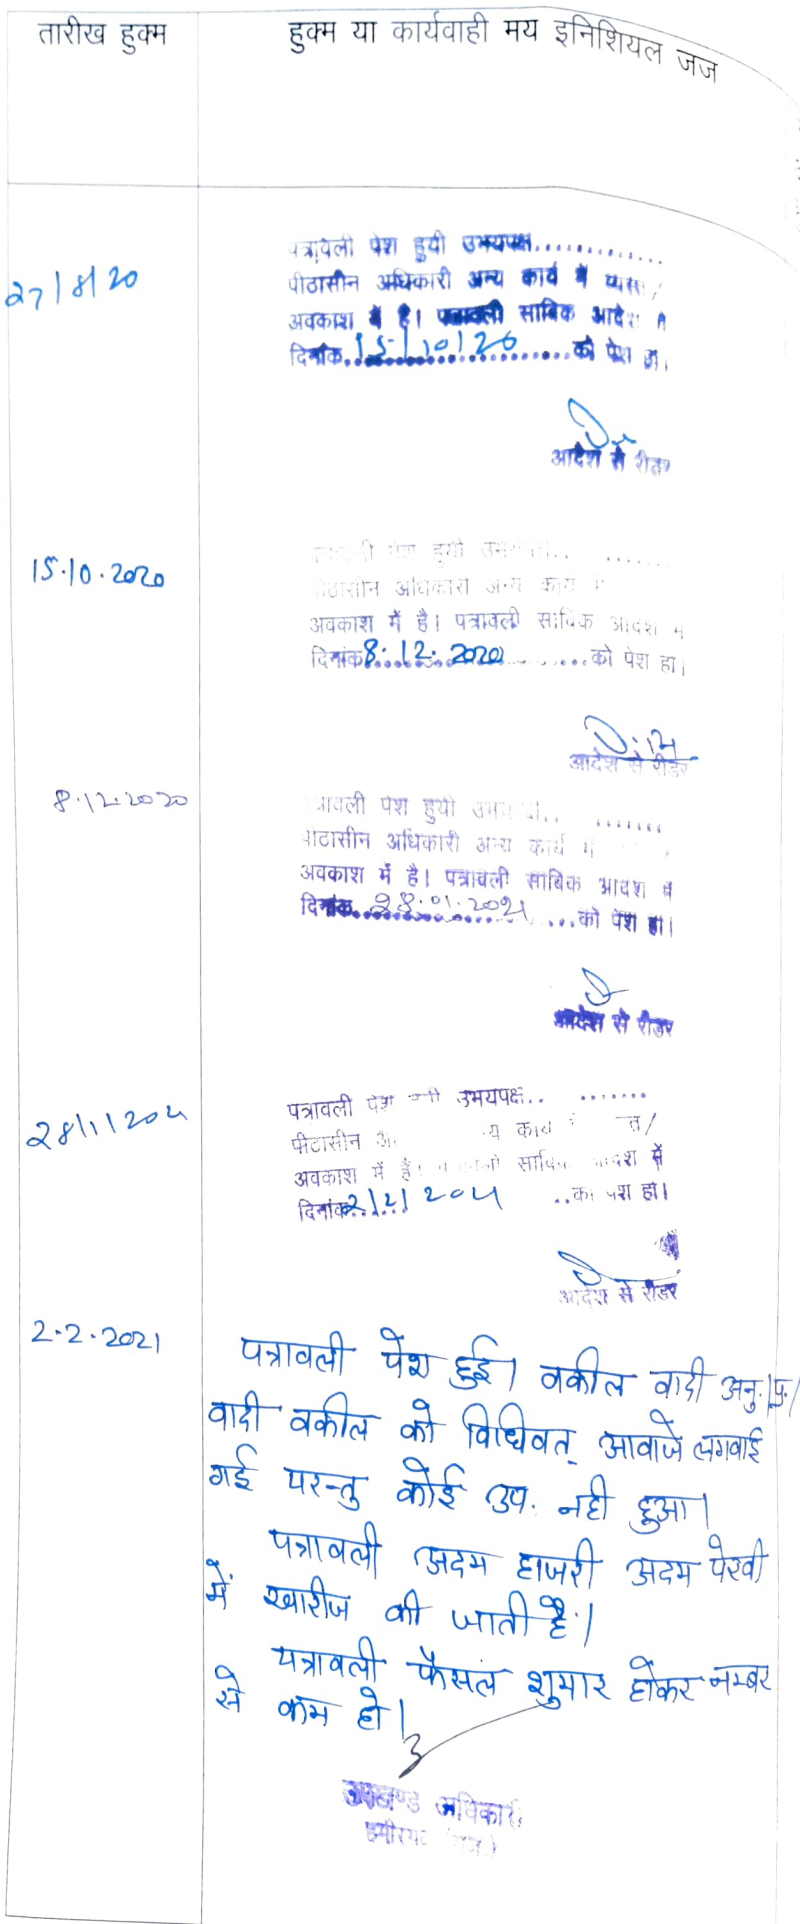 तारीख हुक्म
हुक्म या कार्यवाही मय इनिशियल जज
27/8/20
पत्रावली पेश हुयी उभयपक्ष.............
पीठासीन अधिकारी अन्य कार्य में व्यस्त/
अवकाश में है। पत्रावली साबिक आदेश में
दिनांक 15/10/20 को पेश हो।
आदेश से रीडर
15.10.2020
पत्रावली पेश हुयी उभयपक्ष.. .......
पीठासीन अधिकारी अन्य कार्य में
अवकाश में है। पत्रावली साबिक आदेश में
दिनांक 8.12.2020 ....को पेश हो।
आदेश से रीडर
8.12.2020
पत्रावली पेश हुयी उभयपक्ष.. .......
पीठासीन अधिकारी अन्य कार्य में
अवकाश में है। पत्रावली साबिक आदेश में
दिनांक 28.01.2021 ...को पेश हो।
आदेश से रीडर
28/1/2021
पत्रावली पेश उभयपक्ष.. .......
पीठासीन कार्य
अवकाश में है। साबिक आदेश में
दिनांक 2/2/2021 ..को पेश हो।
आदेश से रीडर
2.2.2021
पत्रावली पेश हुई। वकील वादी अनु.।प्र./
वादी वकील को विधिवत् आवाजे लगवाई
गई परन्तु कोई उप. नही हुआ।
पत्रावली अदम हाजरी अदम पेरवी
में खारीज की जाती है।
पत्रावली फैसल शुमार होकर नम्बर
से कम हो।
उपखण्ड अधिकारी